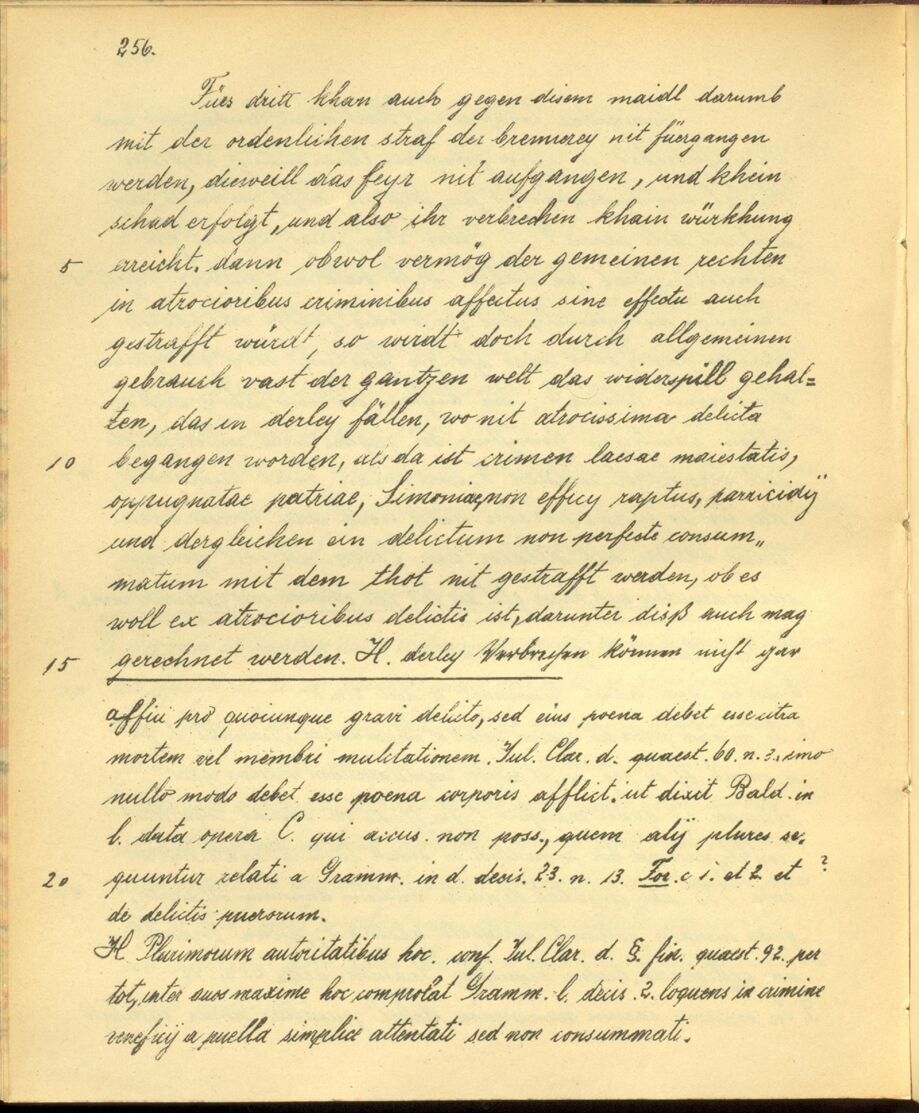 256.
Fürs dritt khan auch gegen disem maidl darumb
mit der ordenlichen straf der brennerey nit fürgangen
werden, dieweill das feyr nit aufgangen, und khein
schad erfolgt, und also ihr verbrechen khain würkhung
5 erreicht. dann obwol vermög der gemeinen rechten
in atrocioribus criminibus affectus sine effectu auch
gestrafft würdt, so wirdt doch durch allgemeinen
gebrauch vast der gantzen welt das widerspill gehal=
ten, das in derley fällen, wo nit atrocissima delicta
10 begangen worden, als da ist crimen laesae maiestatis,
oppugnatae patriae, Simoniae, non efficy raptus, parricidij
und dergleichen ein delictum non perfecte consum„
matum mit dem thot nit gestrafft werden, ob es
woll ex atrocioribus delictis ist, darunter disß auch mag
15 gerechnet werden. H. derley Verbrechen können nicht gar
affici pro quocunque gravi delicto, sed eius poena debet esse citra
mortem vel membri mulctationem. Iul. Clar. d. quaest. 60. n. 2., imo
nullo modo debet esse poena corporis afflict. ut dixit Bald. in
l. data opera C. qui accus. non poss., quem alij plures se,
20 quuntur relati a Gramm. in d. decis. 23. n. 13. For. c 1. et 2. et ?
de delictis puerorum.
H. Plurimorum autoritatibus hoc. conf. Iul. Clar. d. §. fin. quaest. 92. per
tot, inter quos maxime hoc comprobat Gramm. l. decis. 2. loquens in crimine
veneficij a puella simplice attentati sed non consummati.